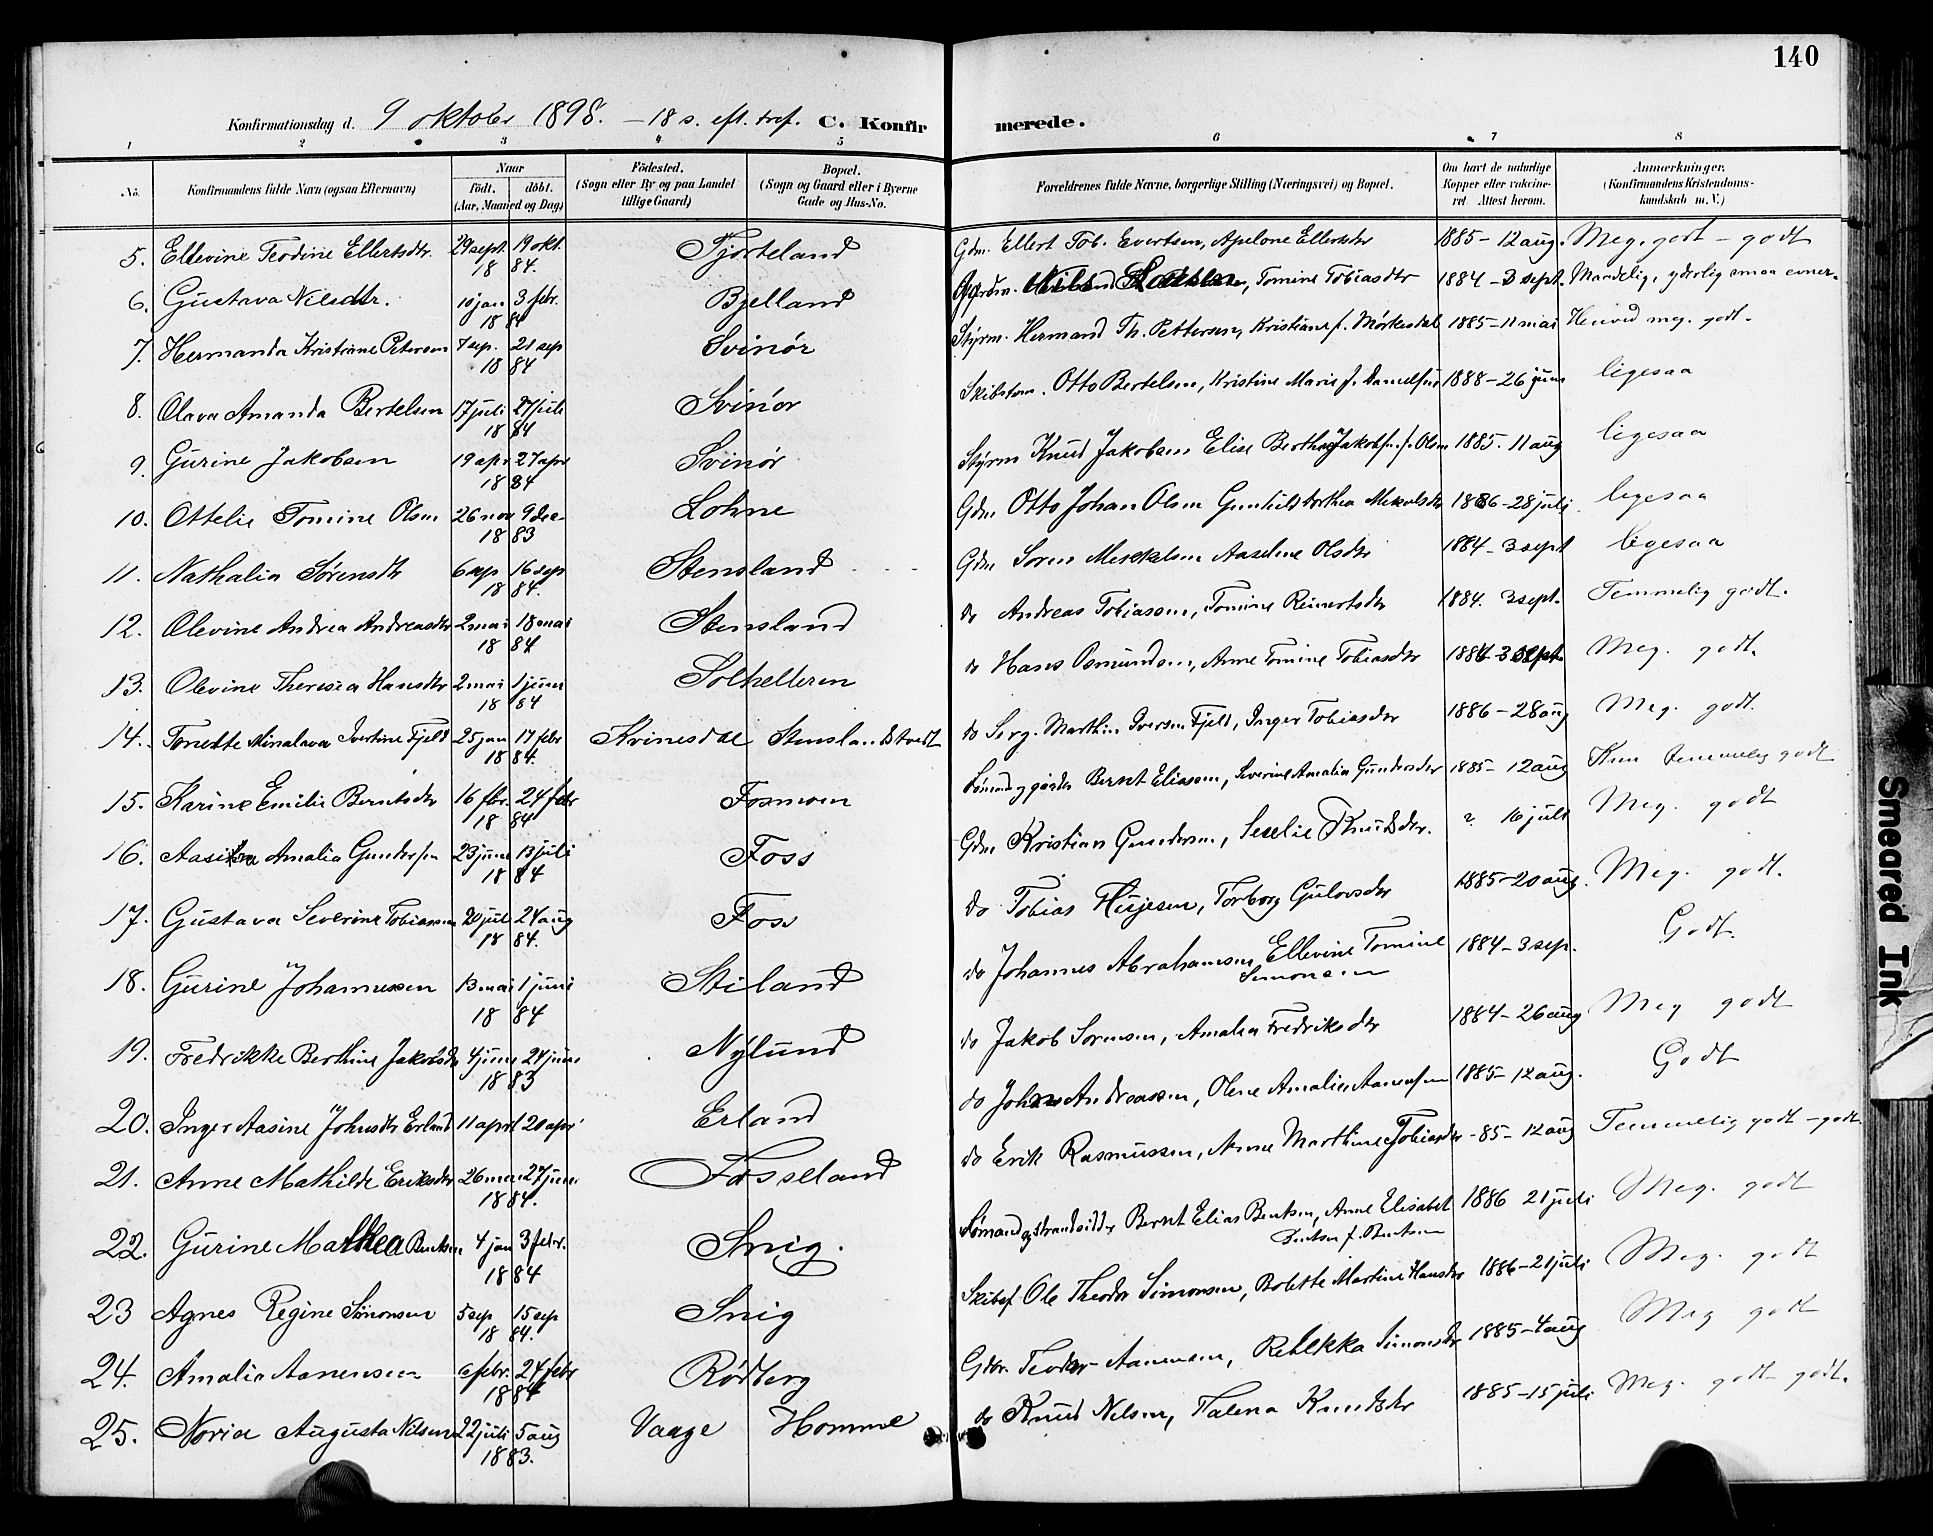 140
Konfirmationsdag d. 9 oktober 1898. – 18 s. eft. tref. C. Konfir merede.
1 2 3 4 5 6 7 8
No. Konfirmandens fulde Navn (ogsaa Efternavn) Naar født. døbt. (Aar, Maaned og Dag) Fødested. (Sogn eller By og paa Landet tillige Gaard) Bopæl. (Sogn og Gaard eller i Byerne Gade og Hus-No. Forældrenes fulde Navne, borgerlige Stilling (Næringsvei) og Bopæl. Om havt de naturlige Kopper eller vakcineret. Attest herom. Anmerkninger. (Konfirmandens Kristendomskundskab m. V.)
5. Ellevine Teodine Ellertsdtr 29 sept 19 okt. 18 84. Fjorteland Gdm. Ellert Tob. Evertsen, Apelone Ellertsdtr 1885 – 12 aug. Meg. godt – godt
6. Gustava Nilsdtr. 10 jan 3 febr. 18 84 Bjelland Nils Tomine Tobiasdtr 1884 – 3 sept. Maadelig, yderlig smaa evner.
7. Hermanda Kristiane Petersen 7 sep. 21 sep 18 84 Svinør Styrm. Hermand Th. Pettersen, Kristiane f. Mörkesdal 1885 – 11 mai Henved meg. godt.
8. Olava Amanda Bertelsen 17 juli 27 juli 18 84 Svinør Skibstøm. Otto Bertelsen, Kristine Marie f. Danielsen 1888 – 26 juni ligesaa
9. Gurine Jakobsen 19 apr 27 apr 18 84 Svinør Styrm Knud Jakobsen Elise Berthea Jakobs. f. Olsen 1885. 11 aug ligesaa
10. Ottelie Tomine Olsen 26 nov 9 dec 18 83 Lohne Gdm Otto Johan Olsen Gunhild Dorthea Mekelsdtr 1886 – 28 juli ligesaa
11. Nathalia Sørensdtr 6 sep 16 sep 18 84. Stensland Gdm Soren Mekkelsen Aaseline Olsdtr 1884 – 3 sept ligesaa
12. Olevine Andrea Andreasdtr 2 mai 18 mai 18 84 Stensland do Andreas Tobiassen, Tomine Reinertsdtr 1884. 3 sept. Temmelig godt.
13. Olevine Theresia Hansdtr 2 mai 1 juni 18 84 Solhelleren do Hans Osmundsen, Anne Tomine Tobiasdtr 1884 – 3 sept. Meg. godt.
14. Tonette Minalava Ivertine Fjeld 25 jan 17 febr 18 84. Kvinesdal Stenslandstvedt do Serg. Marthin Iversen Fjeld, Inger Tobiasdtr 1886 – 28 aug Meg. godt.
15. Karine Emilie Berntsdtr 16 fbr. 24 febr 18 84 Fosmoen Sømand og gårdm Bernt Eliassen, Severine Amalia Gundersdtr 1885 – 12 aug Kun temmelig godt
16. Amalia Gundersen 23 juni 13 juli 18 84 Foss Gdm Kristian Gundersen, Knudsdtr. ? 16 juli Meg. godt
17. Gustava Severine Tobiassen 20 juli 24 aug 18 84. Foss do Tobias Torborg Gulovsdtr 1885 – 20 aug. Meg. godt.
18. Gurine Johannessen 13 mai 1 juni 18 84 Stiland do Johannes Abrahamsen Ellevine Tomine Simonsen 1884 – 3 sep. Godt.
19. Fredrikke Berthine Jakobsdtr 4 juni 24 juni 18 83 Nylund do Jakob Sorensen, Amalia Fredriksdtr 1884 – 26 aug Meg godt
20. Inger Aasine Johnsdtr Erland 11 aprl 20 apri Erland do John Andreassen, Olene Amalia Aanensen 1885 – 12 aug. Godt
21. Anne Mathilde Eriksdtr 26 mai 27 juni 18 84. Fosseland do Erik Rasmussen, Anne Marthine Tobiasdtr – 85 – 12 aug Temmelig godt – godt
22. Gurine Mathea Bentsen 4 jan 3 febr. 18 84 Snig. Sømand og strandsidder Bernt Elias Bentsen, Anne Elisabet Bentsen f. Bentsen 1886 21 juli Meg. godt
23 Agnes Regine Simonsen 5 sep 15 sep 18 84. Snig Skibsf. Ole Theodor Simonsen, Bolette Martine Hansdtr 1886 – 21 juli Meg. godt
24. Amalia Aanensen 6 febr. 24 febr 18 84 Rödberg Gdbr. Teodor Aanensen, Rebekka Simonsdtr 1885 – 4 aug Meg godt
25. Noria Augusta Nilsen 22 juli 5 aug 18 83. Vaage Homme do Knud Nilsen, Talena Knudsdtr 1885 – 15 juli Meg. godt – godt.
Smeared Ink